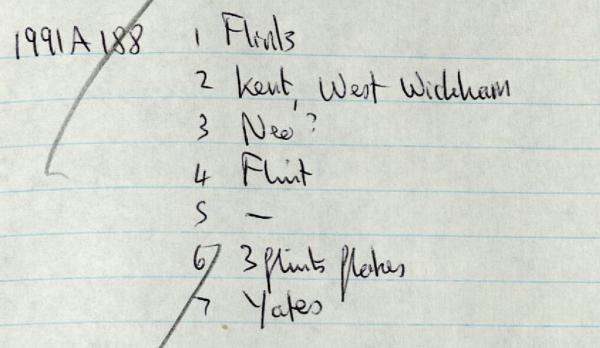 1991A 188 1 Flints
2 Kent, West Wickham
3 Neo?
4 Flint
5 —
6 3 flints flakes
7 Yates